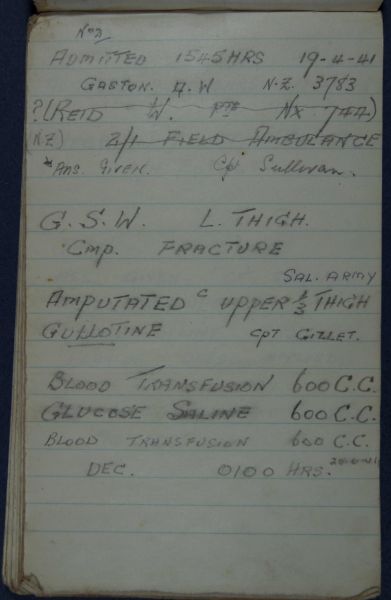 No 2
ADMITTED 1545 HRS 19-4-41
GASTON. A.W N.Z. 3783
?(REID W. PTE NX 744)
(NZ) 2/1 FIELD AMBULANCE
*Ans. GIVEN. Cpl Sullivan.
G.S.W. L. THIGH.
Cmp. FRACTURE
SAL. ARMY
AMPUTATED C UPPER 1/3 THIGH
GULLOTINE CPT GILLET.
BLOOD TRANSFUSION 600 C.C.
GLUCOSE SALINE 600 C.C.
BLOOD TRANSFUSION 600 C.C.
DEC. 0100 HRS. 20-4-41